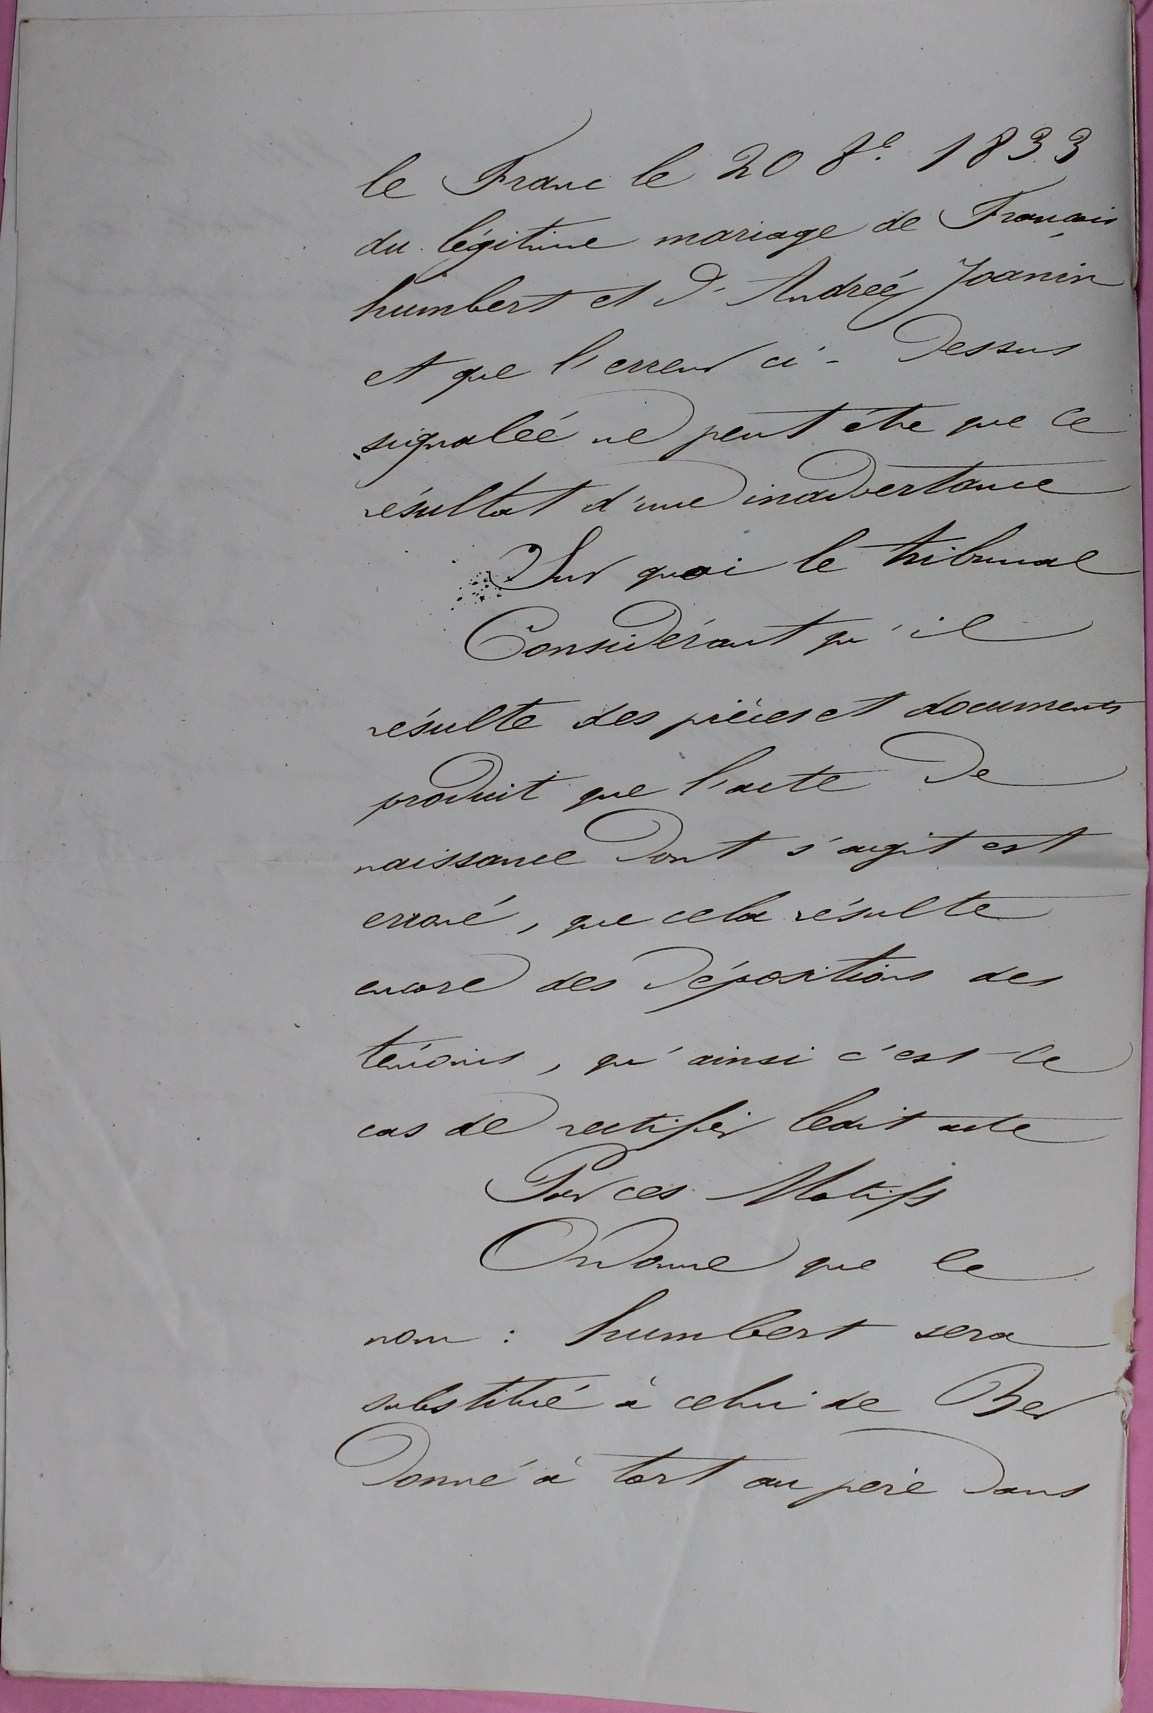 le Franc le 20 8e. 1833
du légitime mariage de François
humbert et d'Andréé Joanin
et que l'erreur ci-dessus
signaleé ne peut être que le
résultat d'une inadvertance
Sur quoi le tribunal
Considérant qu'il
résulte des pièces et documents
produit que l'acte de
naissance dont s'agit est
erroné, que cela résulte
encore des dépositions des
témoins, qu'ainsi c'est le
cas de rectifier ledit acte
Par ces Motifs
Ordonne que le
nom : humbert sera
substitué à celui de Ber
donné à tort au père dans